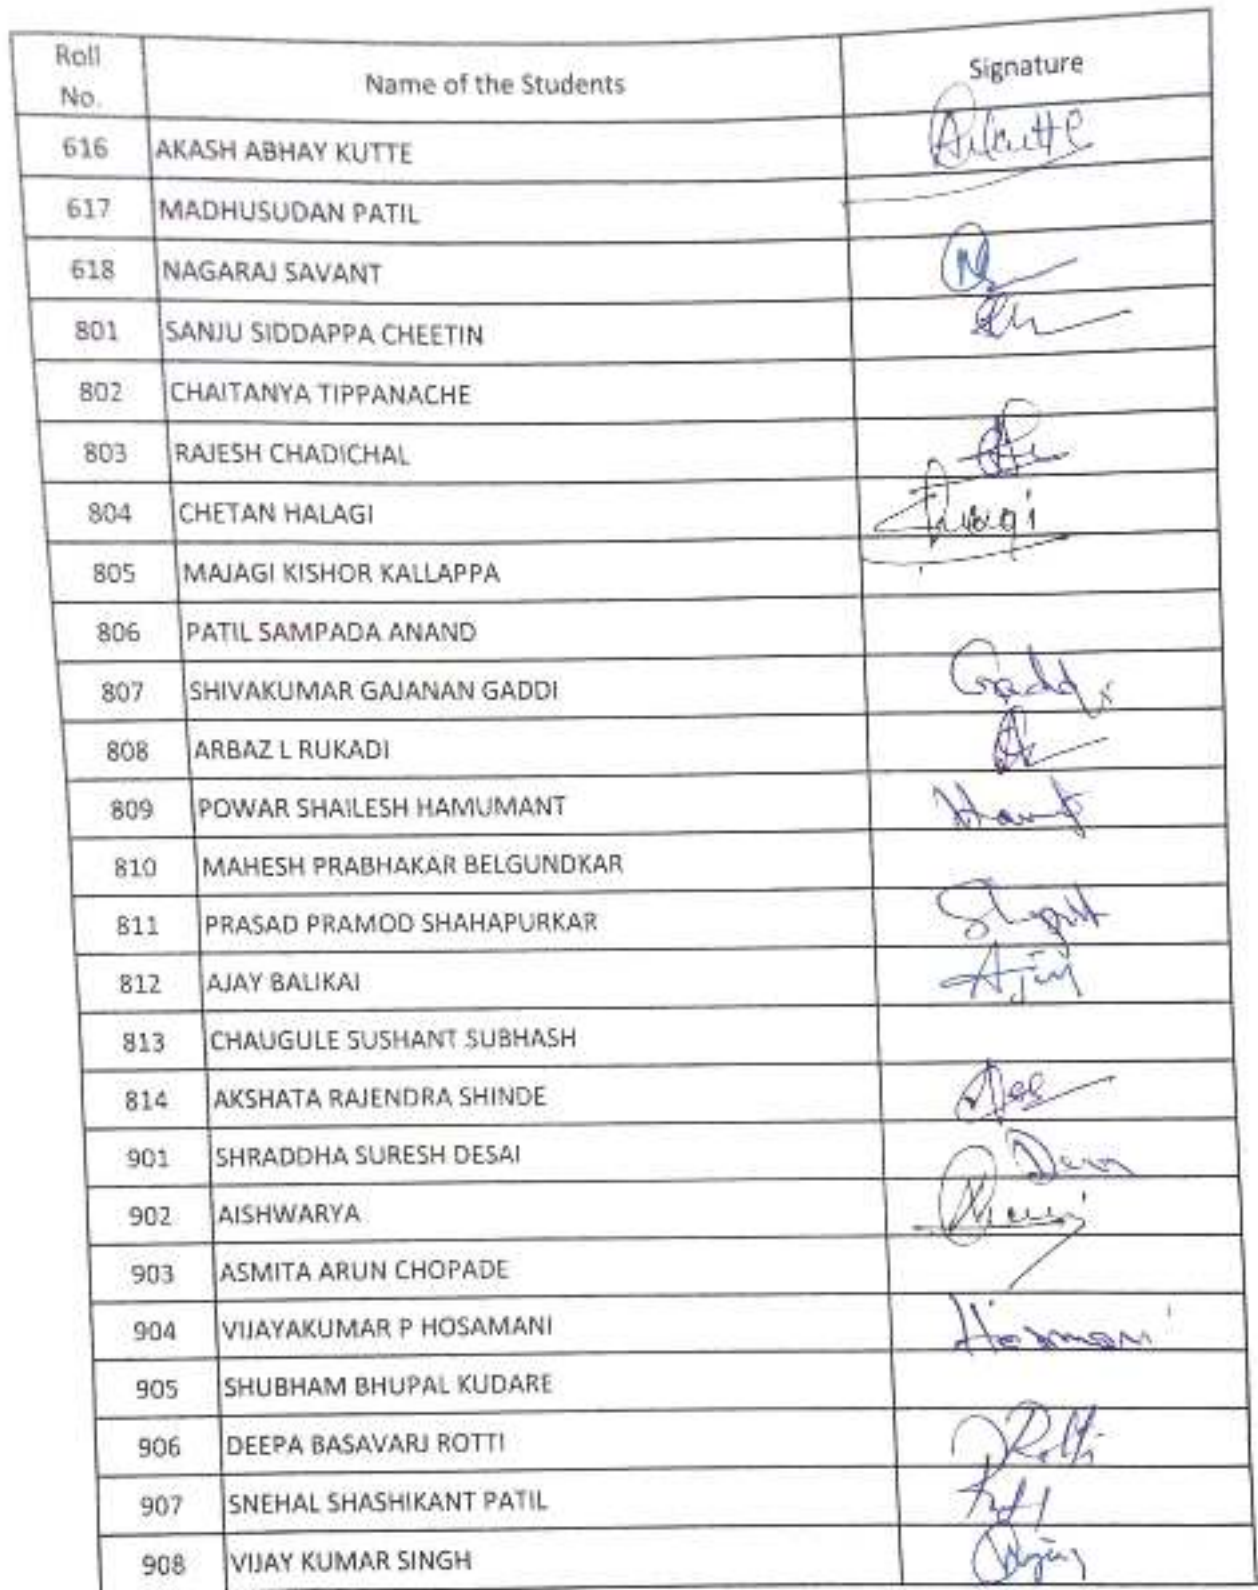 Roll No. Name of the Students Signature
616 AKASH ABHAY KUTTE
617 MADHUSUDAN PATIL
618 NAGARAJ SAVANT
801 SANJU SIDDAPPA CHEETIN
802 CHAITANYA TIPPANACHE
803 RAJESH CHADICHAL
804 CHETAN HALAGI
805 MAJAGI KISHOR KALLAPPA
806 PATIL SAMPADA ANAND
807 SHIVAKUMAR GAJANAN GADDI Gaddi
808 ARBAZ L RUKADI
809 POWAR SHAILESH HAMUMANT
810 MAHESH PRABHAKAR BELGUNDKAR
811 PRASAD PRAMOD SHAHAPURKAR
812 AJAY BALIKAI Ajay
813 CHAUGULE SUSHANT SUBHASH
814 AKSHATA RAJENDRA SHINDE
901 SHRADDHA SURESH DESAI
902 AISHWARYA
903 ASMITA ARUN CHOPADE
904 VIJAYAKUMAR P HOSAMANI
905 SHUBHAM BHUPAL KUDARE
906 DEEPA BASAVARJ ROTTI
907 SNEHAL SHASHIKANT PATIL
908 VIJAY KUMAR SINGH